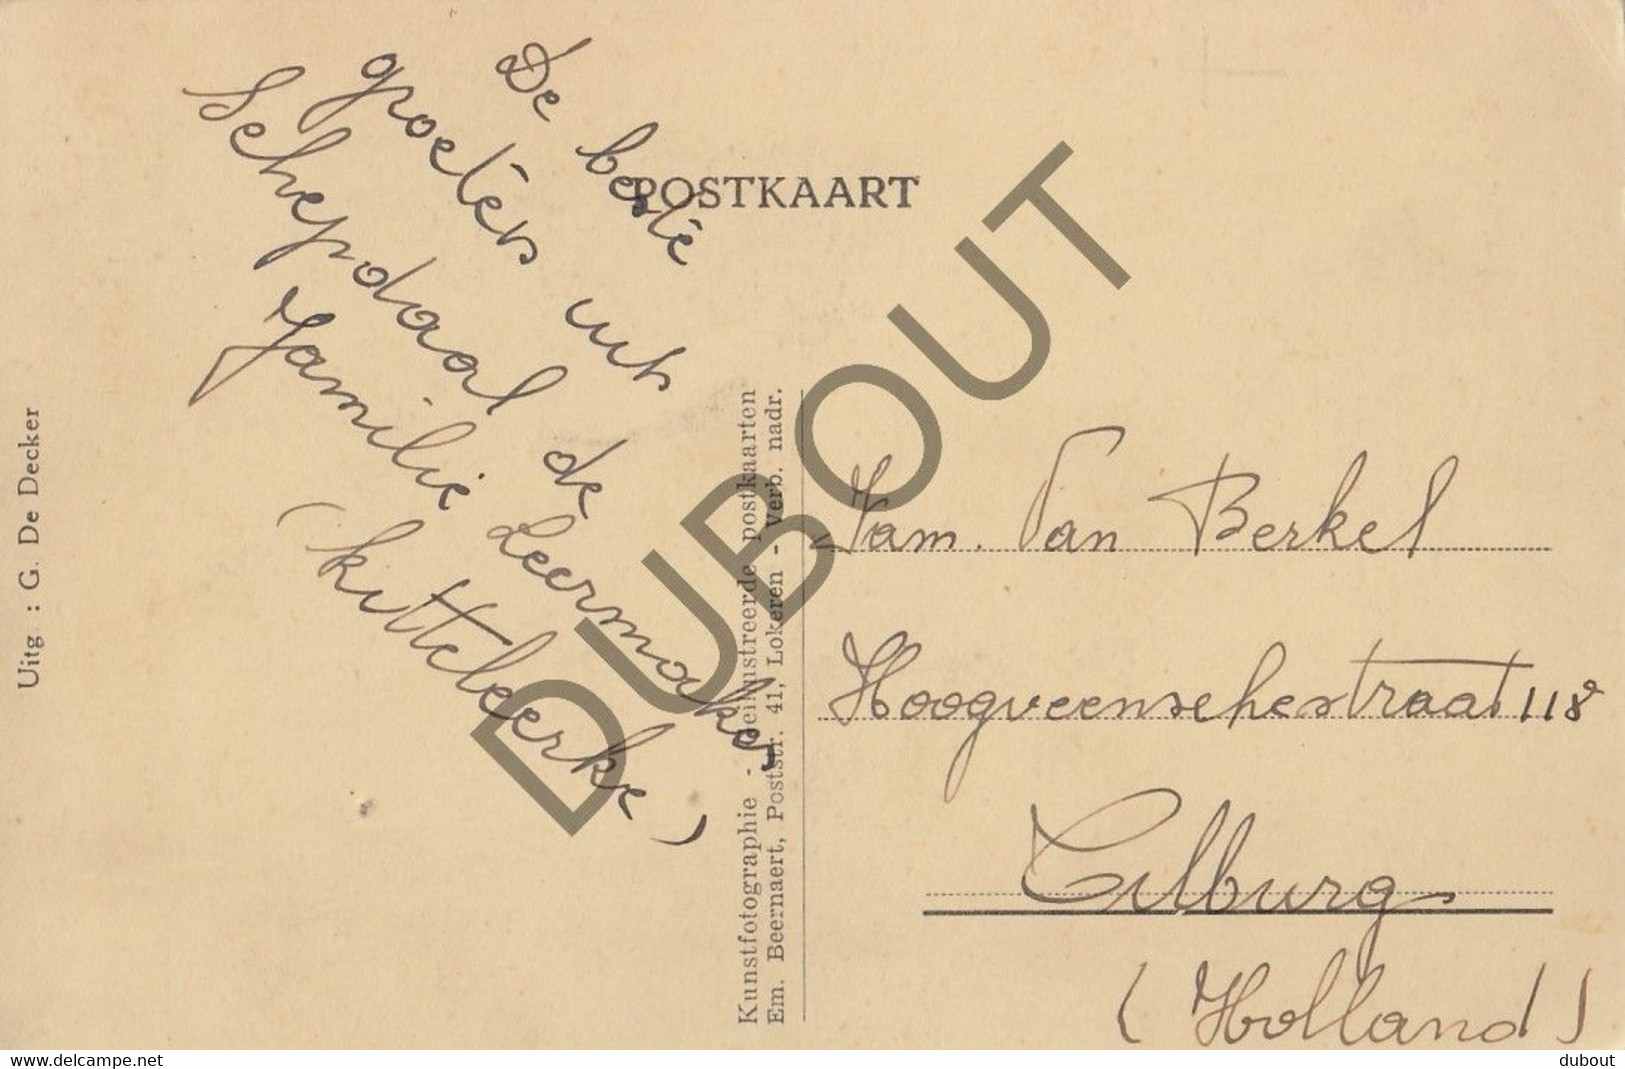 De beste
groeten uit
Schepdaal de
Familie Leermaker
(Kitteleerke)
POSTKAART
Uitg : G. De Decker
Kunstfotographie - Geïllustreerde postkaarten
Em. Beernaert, Poststr. 41, Lokeren - Verb. nadr.
Fam. Van Berkel
Hoogveenschestraat 118
Tilburg
(Holland)
DUBOUT
www.delcampe.net
dubout